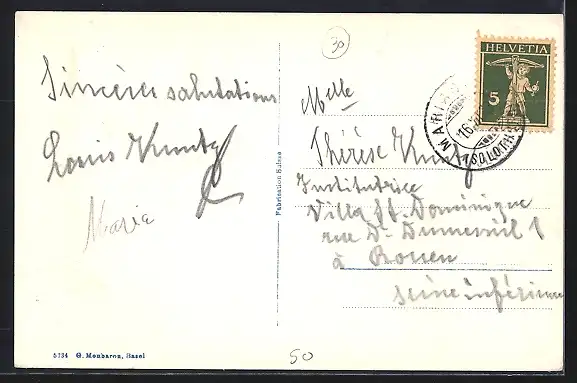 30
Sincères salutations
Louis Kuntz
Maria
Fabrication Suisse
5134 G. Monbaron, Basel
HELVETIA
5
MARIA
16
(SOLOTH
Melle
Thérèse Kuntz
Institutrice
Villa St. Dominique
rue Dr Dumesnil 1
à Rouen
Seine inférieure
50